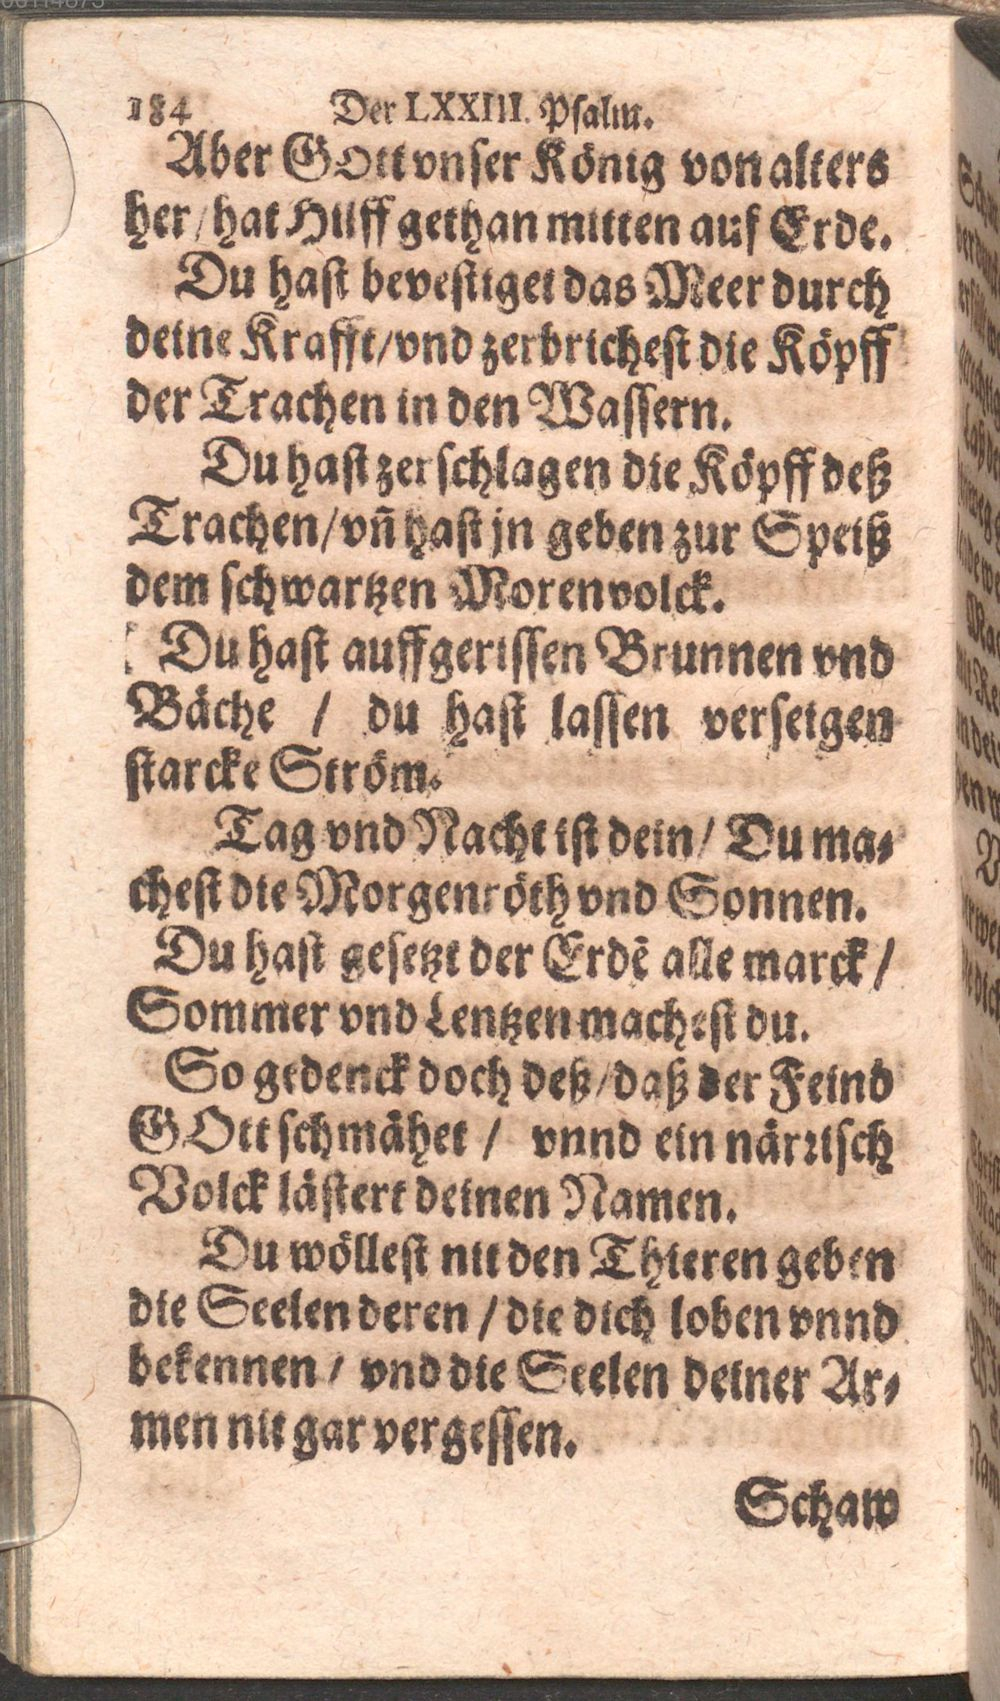 184 Der LXXIII. Psalm.
Aber GOtt vnser König von alters
her / hat Hilff gethan mitten auf Erde.
Du hast bevestiget das Meer durch
deine Krafft / vnd zerbrichest die Köpff
der Trachen in den Wassern.
Du hast zerschlagen die Köpff deß
Trachen / vñ hast jn geben zur Speiß
dem schwartzen Morenvolck.
Du hast auffgerissen Brunnen vnd
Bäche / du hast lassen verseigen
starcke Ström.
Tag vnd Nacht ist dein / Du ma⸗
chest die Morgenröth vnd Sonnen.
Du hast gesetzt der Erdē alle marck /
Sommer vnd Lentzen machest du.
So gedenck doch deß / daß der Feind
GOtt schmähet / vnnd ein närrisch
Volck lästert deinen Namen.
Du wöllest nit den Thieren geben
die Seelen deren / die dich loben vnnd
bekennen / vnd die Seelen deiner Ar⸗
men nit gar vergessen.
Schaw